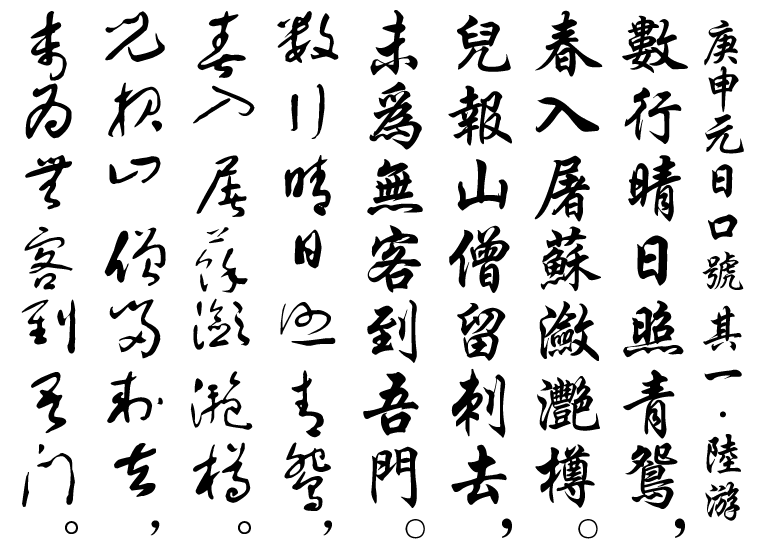 庚申元日口號其一·陸游
數行晴日照青鴛，
春入屠蘇瀲灩樽。
兒報山僧留刺去，
未爲無客到吾門。
數行晴日照青鴛，
春入屠蘇瀲灩樽。
兒報山僧留刺去，
未爲無客到吾門。